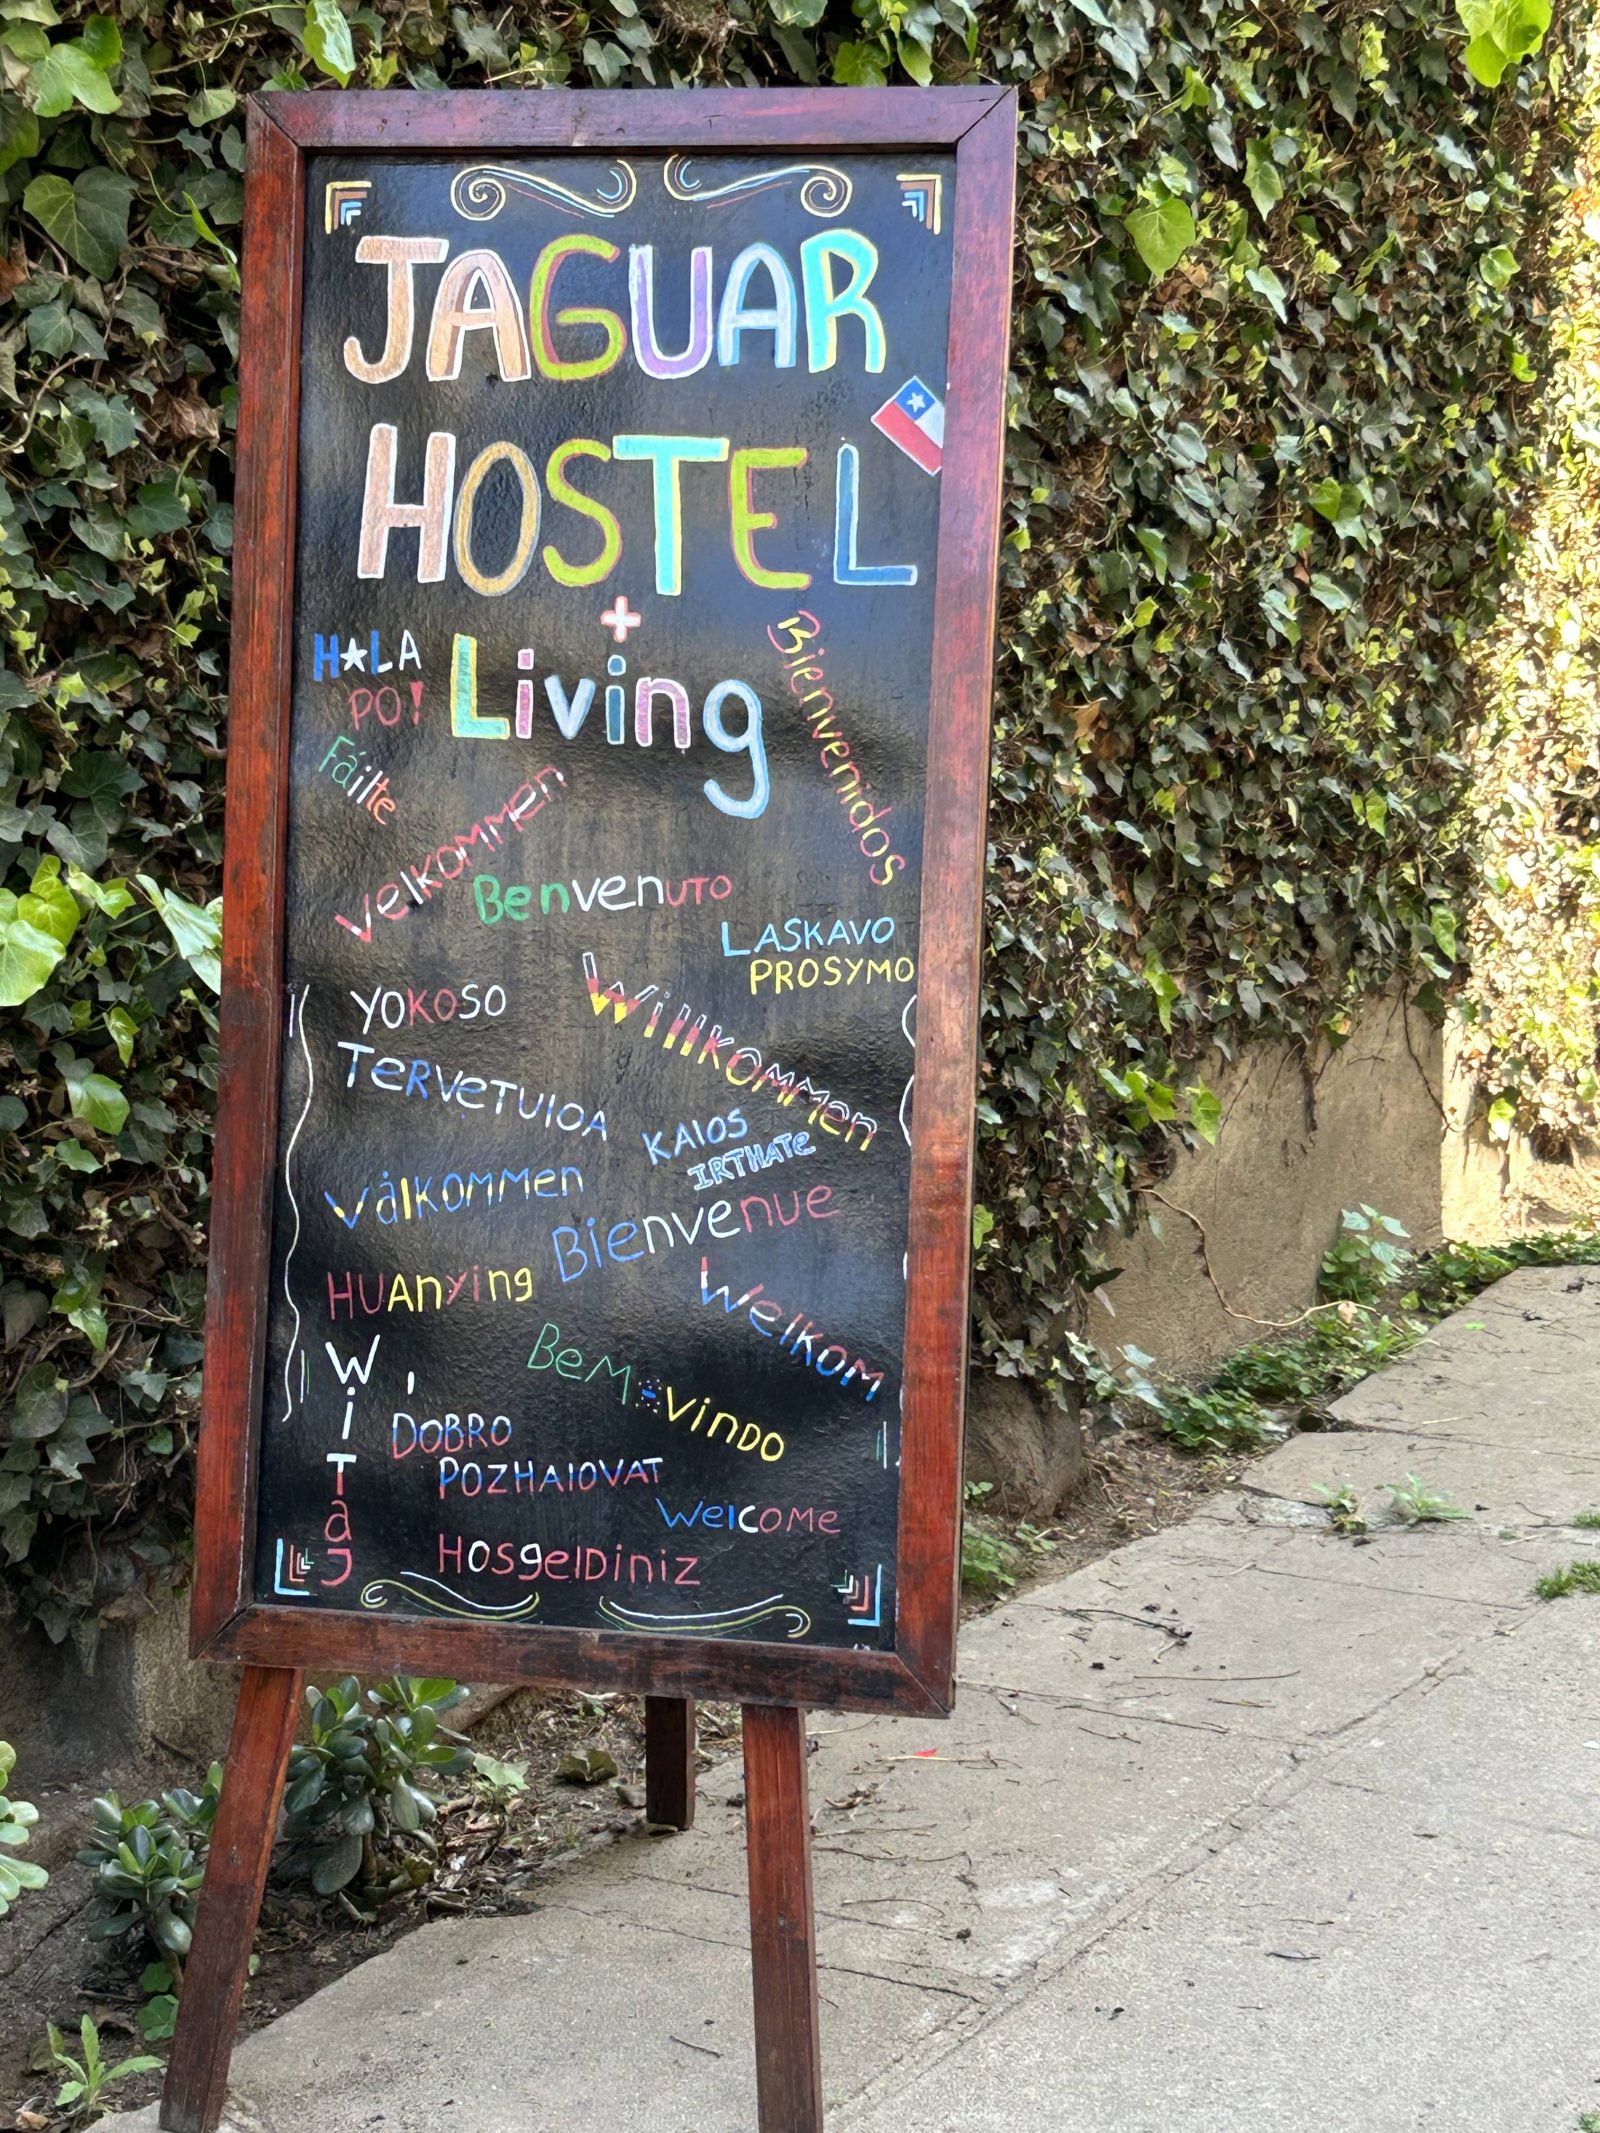 JAGUAR
HOSTEL
+
Living
H★LA
PO!
Bienvenidos
Fáilte
Velkommen
Benvenuto
LASKAVO
PROSYMO
YOKOSO
Willkommen
TERVETULOA
KALOS
IRTHATE
Välkommen
Bienvenue
HUANying
Welkom
BeM-vindo
WiTaj
DOBRO
POZHALOVAT
,
Welcome
HosgelDiniz